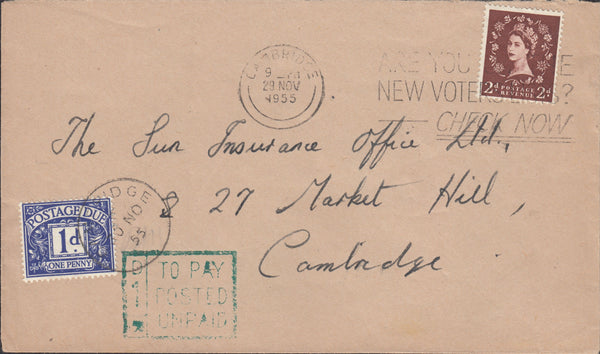 CAMBRIDGE
9 PM
29 NOV
1955
ARE YOU
NEW VOTERS ?
CHECK NOW
2d POSTAGE REVENUE 2d
The Sun Insurance Office Ltd.,
27 Market Hill,
Cambridge
NO
55
POSTAGE DUE
1d.
ONE PENNY
D
1
TO PAY
POSTED
UNPAID